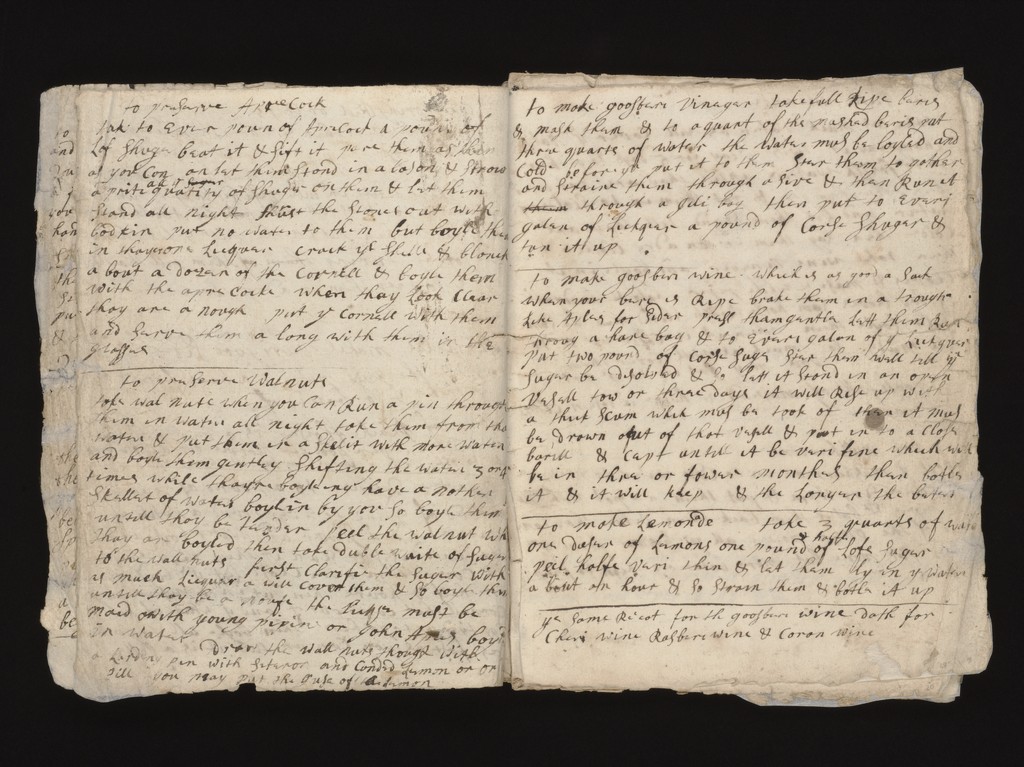 to preserve Aprecock
take to Ever pound of Aprecock a pound of
Lof Shuger beat it & Sift it pare them as thin
as you Con and let them Stand in a bason & Strow
a quantity of Shuger on them & let them
Stand all night thrust the Stones out with
bodkin put no water to them but boyle them
in thayr one Licquer crack ye Shells & blanch
about a dozen of the Cornell & boyle them
with the aprecocks when thay Look Clear
thay are a nough put ye Cornell with them
and Sarve them a long with them in the
glasses
to preserve Walnuts
take walnuts when you Can Run a pin through
them in water all night take them from the
water & put them in a Skelit with more water
and boyle them gently Shifting the water 3 or
times while thayre boyleing have a nother
Skellet of water boylin by you So boyle them
untill thay be Tander peel the walnut wh
thay are boyled then take duble waite of Sugar
to the wallnuts first Clarifie the Sugar with
as much Licquer a will Cover them & So boyle them
untill thay be a nough the must be
maid with young pipin or John Apls boyl
in water draw the wallnuts though with
a Larding pin with Seteron and Conded Lemon or or
till you may put the of a Lemon
to make goosberi Vinagar take full Ripe beris
& mash them & to a quart of the mashed beris put
three quarts of water the water must be boyled and
Cold before ye put it to them Stear them to gather
and Straine them through a Sive & then Run it
them through a Jeli bag then put to Everi
galon of Lickquer a pound of Corse Shuger &
tun it up
to make goosberi wine which is as good a Sack
when your beri is Ripe brake them in a trought
Like Aples for Sidar press them gentle Lett them Run
throug a hare bag & to Everi galon of ye Lickquer
put two pound of Corse Suger Stear them well till ye
Sugar be disolved & So let it Stand in an open
Vesell tow or three days it will Rise up with
a thick Scum which mus be took of then it mus
be drown out of that Vesell & put in to a Close
barill & Capt untill it be veri fine which will
be in three or fower monthes then botle
it & it will keep & the Longer the beter
to make Lemonde take 3 quarts of water
one dosen of Lemons one pound & halfe of Lofe Sugar
peel halfe veri thin & let them ly in ye water
a bout an hour & So Strain them & botle it up
ye Same Recet for the goosberi wine doth for
Cheri wine Rasberi wine & Coron wine